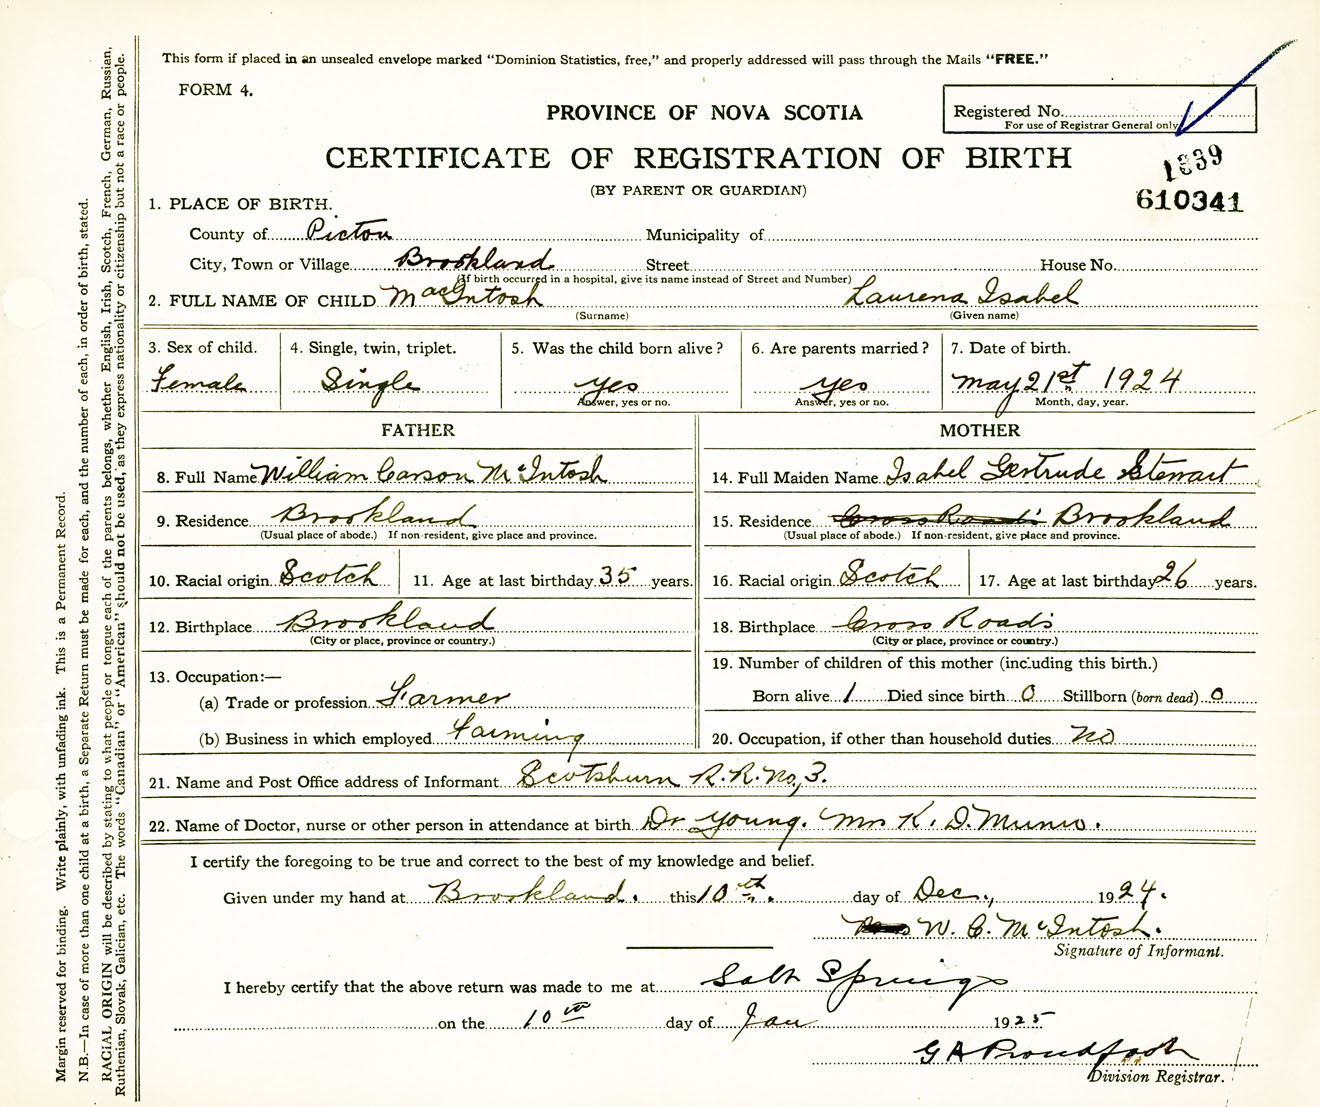 This form if placed in an unsealed envelope marked "Dominion Statistics, free," and properly addressed will pass through the Mails "FREE."
FORM 4.
PROVINCE OF NOVA SCOTIA
Registered No.
For use of Registrar General only
CERTIFICATE OF REGISTRATION OF BIRTH
1839
(BY PARENT OR GUARDIAN)
610341
1. PLACE OF BIRTH.
County of Pictou Municipality of
City, Town or Village Brookland Street House No.
(If birth occurred in a hospital, give its name instead of Street and Number)
2. FULL NAME OF CHILD MacIntosh Laurena Isabel
(Surname) (Given name)
3. Sex of child. 4. Single, twin, triplet. 5. Was the child born alive? 6. Are parents married? 7. Date of birth.
Female Single yes yes May 21st 1924
Answer, yes or no. Answer, yes or no. Month, day, year.
FATHER MOTHER
8. Full Name William Carson McIntosh 14. Full Maiden Name Isabel Gertrude Stewart
9. Residence Brookland 15. Residence Cross Roads Brookland
(Usual place of abode.) If non-resident, give place and province. (Usual place of abode.) If non-resident, give place and province.
10. Racial origin Scotch 11. Age at last birthday 35 years. 16. Racial origin Scotch 17. Age at last birthday 26 years.
12. Birthplace Brookland 18. Birthplace Cross Roads
(City or place, province or country.) (City or place, province or country.)
13. Occupation:— 19. Number of children of this mother (including this birth.)
(a) Trade or profession Farmer Born alive 1 Died since birth 0 Stillborn (born dead) 0
(b) Business in which employed Farming 20. Occupation, if other than household duties No
21. Name and Post Office address of Informant Scotsburn R.R. No, 3.
22. Name of Doctor, nurse or other person in attendance at birth Dr Young. Mrs K. D. Munro.
I certify the foregoing to be true and correct to the best of my knowledge and belief.
Given under my hand at Brookland. this 10th. day of Dec., 1924.
W. C. McIntosh.
Signature of Informant.
I hereby certify that the above return was made to me at Salt Springs
on the 10th day of Jan 1925
G A Proudfoot
Division Registrar.
Margin reserved for binding. Write plainly, with unfading ink. This is a Permanent Record.
N.B.—In case of more than one child at a birth, a Separate Return must be made for each, and the number of each, in order of birth, stated.
RACIAL ORIGIN will be described by stating to what people or tongue each of the parents belongs, whether English, Irish, Scotch, French, German, Russian,
Ruthenian, Slovak, Galician, etc. The words "Canadian" or "American" should not be used, as they express nationality or citizenship but not a race or people.